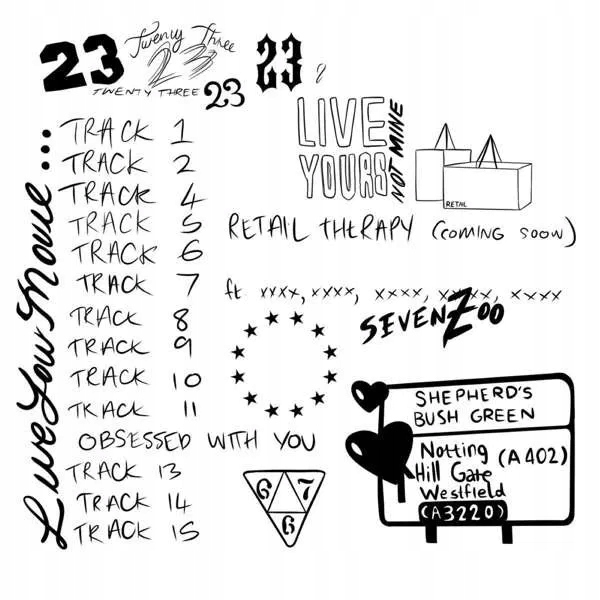 23
Twenty Three
23
TWENTY THREE
23
23
Live Your Movie...
TRACK 1
TRACK 2
TRACK 4
TRACK 5
TRACK 6
TRACK 7
TRACK 8
TRACK 9
TRACK 10
TRACK 11
OBSESSED WITH YOU
TRACK 13
TRACK 14
TRACK 15
LIVE
YOURS
NOT MINE
RETAIL
RETAIL THERAPY (COMING SOON)
ft xxxx, xxxx, xxxx, xxxx, xxxx
SEVEN ZOO
SHEPHERD'S
BUSH GREEN
Notting (A402)
Hill Gate
Westfield
(A3220)
6 7
6